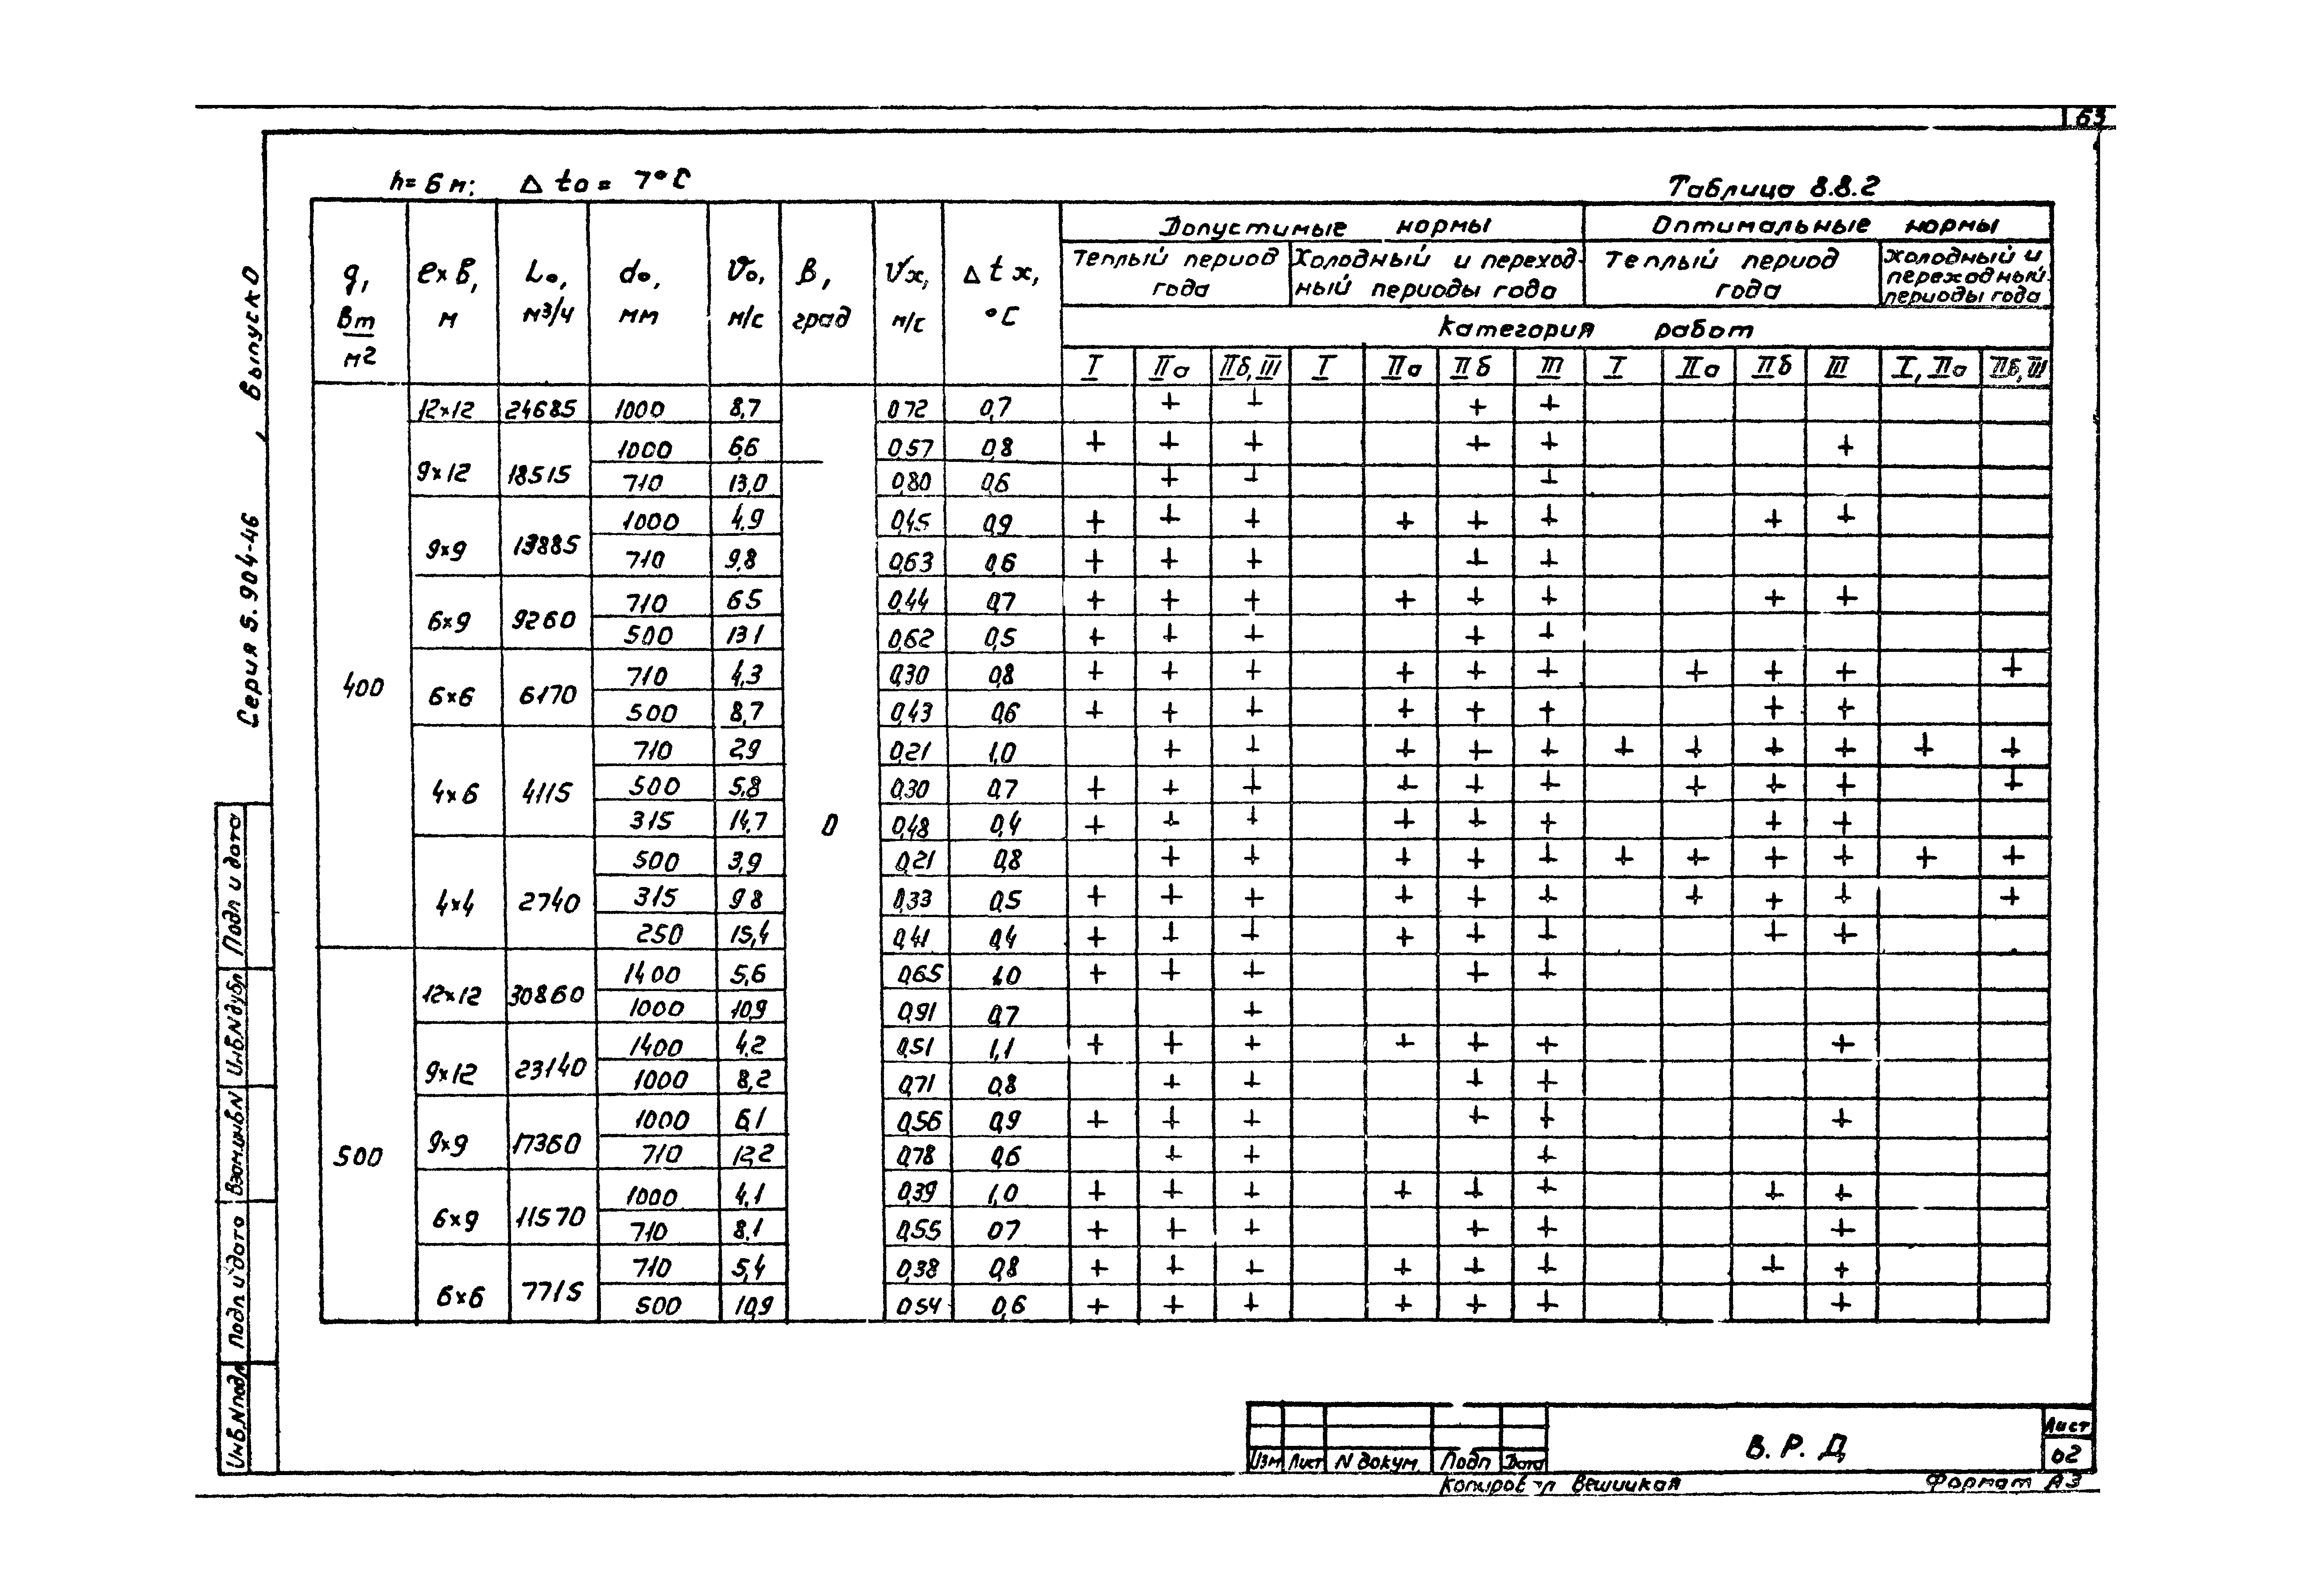 63
h= 6 м; Δ to = 7°C
Таблица 8.8.2
q, Вт/м2 | e×в, м | Lo, м3/ч | do, мм | Vo, м/с | β, град | Vx, м/с | Δtx, °C | Допустимые нормы | Оптимальные нормы
Теплый период года | Холодный и переходный периоды года | Теплый период года | Холодный и переходный периоды года
Категория работ
I | IIа | IIб, III | I | IIа | IIб | III | I | IIа | IIб | III | I, IIа | IIб, III
400 | 12×12 | 24685 | 1000 | 8,7 | 0 | 0,72 | 0,7 | | + | + | | | + | + | | | | | |
9×12 | 18515 | 1000 | 6,6 | 0,57 | 0,8 | + | + | + | | | + | + | | | | + | |
710 | 13,0 | 0,80 | 0,6 | | + | + | | | | + | | | | | |
9×9 | 13885 | 1000 | 4,9 | 0,45 | 0,9 | + | + | + | | + | + | + | | | + | + | |
710 | 9,8 | 0,63 | 0,6 | + | + | + | | | + | + | | | | | |
6×9 | 9260 | 710 | 6 5 | 0,44 | 0,7 | + | + | + | | + | + | + | | | + | + | |
500 | 13 1 | 0,62 | 0,5 | + | + | + | | | + | + | | | | | |
6×6 | 6170 | 710 | 4,3 | 0,30 | 0,8 | + | + | + | | + | + | + | | + | + | + | | +
500 | 8,7 | 0,43 | 0,6 | + | + | + | | + | + | + | | | + | + | |
4×6 | 4115 | 710 | 2,9 | 0,21 | 1,0 | | + | + | | + | + | + | + | + | + | + | + | +
500 | 5,8 | 0,30 | 0,7 | + | + | + | | + | + | + | | + | + | + | | +
315 | 14,7 | 0,48 | 0,4 | + | + | + | | + | + | + | | | + | + | |
4×4 | 2740 | 500 | 3,9 | 0,21 | 0,8 | | + | + | | + | + | + | + | + | + | + | + | +
315 | 9 8 | 0,33 | 0,5 | + | + | + | | + | + | + | | + | + | + | | +
250 | 15,4 | 0,41 | 0,4 | + | + | + | | + | + | + | | | + | + | |
500 | 12×12 | 30860 | 1400 | 5,6 | 0,65 | 1,0 | + | + | + | | | + | + | | | | | |
1000 | 10,9 | 0,91 | 0,7 | | | + | | | | | | | | | |
9×12 | 23140 | 1400 | 4,2 | 0,51 | 1,1 | + | + | + | | + | + | + | | | | + | |
1000 | 8,2 | 0,71 | 0,8 | | + | + | | | + | + | | | | | |
9×9 | 17360 | 1000 | 6,1 | 0,56 | 0,9 | + | + | + | | | + | + | | | | + | |
710 | 12,2 | 0,78 | 0,6 | | + | + | | | | + | | | | | |
6×9 | 11570 | 1000 | 4,1 | 0,39 | 1,0 | + | + | + | | + | + | + | | | + | + | |
710 | 8,1 | 0,55 | 0 7 | + | + | + | | | + | + | | | | + | |
6×6 | 7715 | 710 | 5,4 | 0,38 | 0,8 | + | + | + | | + | + | + | | | + | + | |
500 | 10,9 | 0,54 | 0,6 | + | + | + | | + | + | + | | | | + | |
Серия 5.904-46 , выпуск 0
Подп и дата
Инв.N дубл
Взам.инв.N
Подп и дата
Инв.N подл
Изм | Лист | N докум. | Подп | Дата
В. Р. Д
Лист
62
Вешицкая
Формат А3